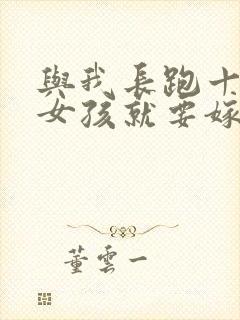 與我長跑十
女孩就要嫁
董雲一